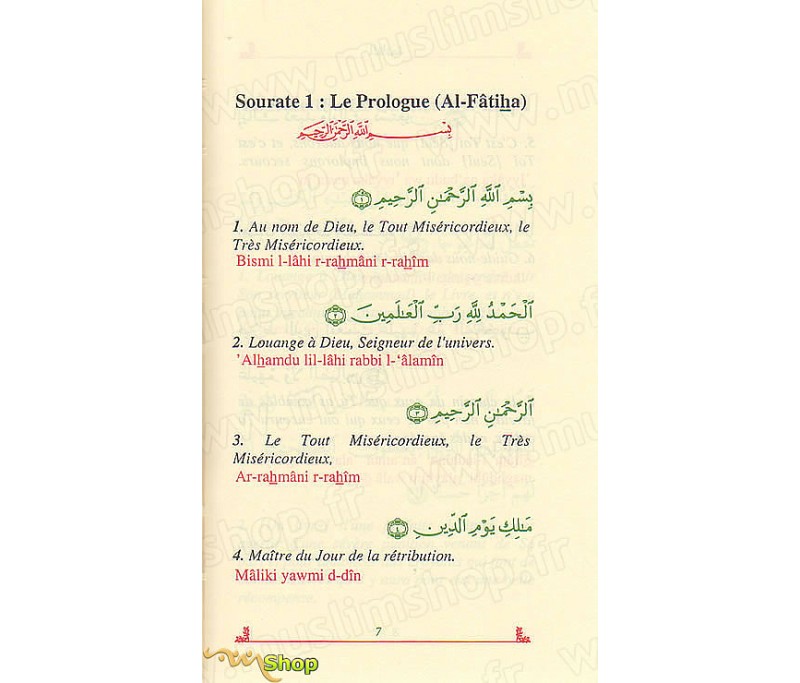 Sourate 1 : Le Prologue (Al-Fâtiha)
بِسْمِ ٱللَّهِ ٱلرَّحْمَٰنِ ٱلرَّحِيمِ
بِسْمِ ٱللَّهِ ٱلرَّحْمَٰنِ ٱلرَّحِيمِ ١
1. Au nom de Dieu, le Tout Miséricordieux, le
Très Miséricordieux.
Bismi l-lâhi r-rahmâni r-rahîm
ٱلْحَمْدُ لِلَّهِ رَبِّ ٱلْعَٰلَمِينَ ٢
2. Louange à Dieu, Seigneur de l'univers.
'Alhamdu lil-lâhi rabbi l-‘âlamîn
ٱلرَّحْمَٰنِ ٱلرَّحِيمِ ٣
3. Le Tout Miséricordieux, le Très
Miséricordieux,
Ar-rahmâni r-rahîm
مَٰلِكِ يَوْمِ ٱلدِّينِ ٤
4. Maître du Jour de la rétribution.
Mâliki yawmi d-dîn
7
Shop
www.muslimshop.fr